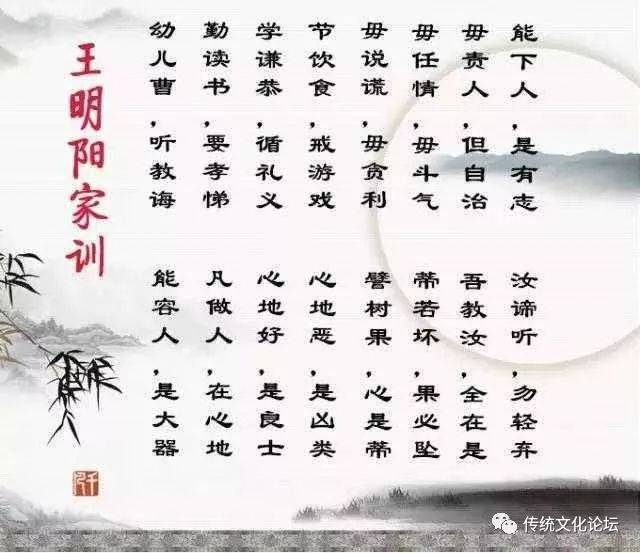 王明阳家训
幼儿曹，听教诲
勤读书，要孝悌
学谦恭，循礼义
节饮食，戒游戏
毋说谎，毋贪利
毋任情，毋斗气
毋责人，但自治
能下人，是有志
能容人，是大器
凡做人，在心地
心地好，是良士
心地恶，是凶类
譬树果，心是蒂
蒂若坏，果必坠
吾教汝，全在是
汝谛听，勿轻弃
传统文化论坛